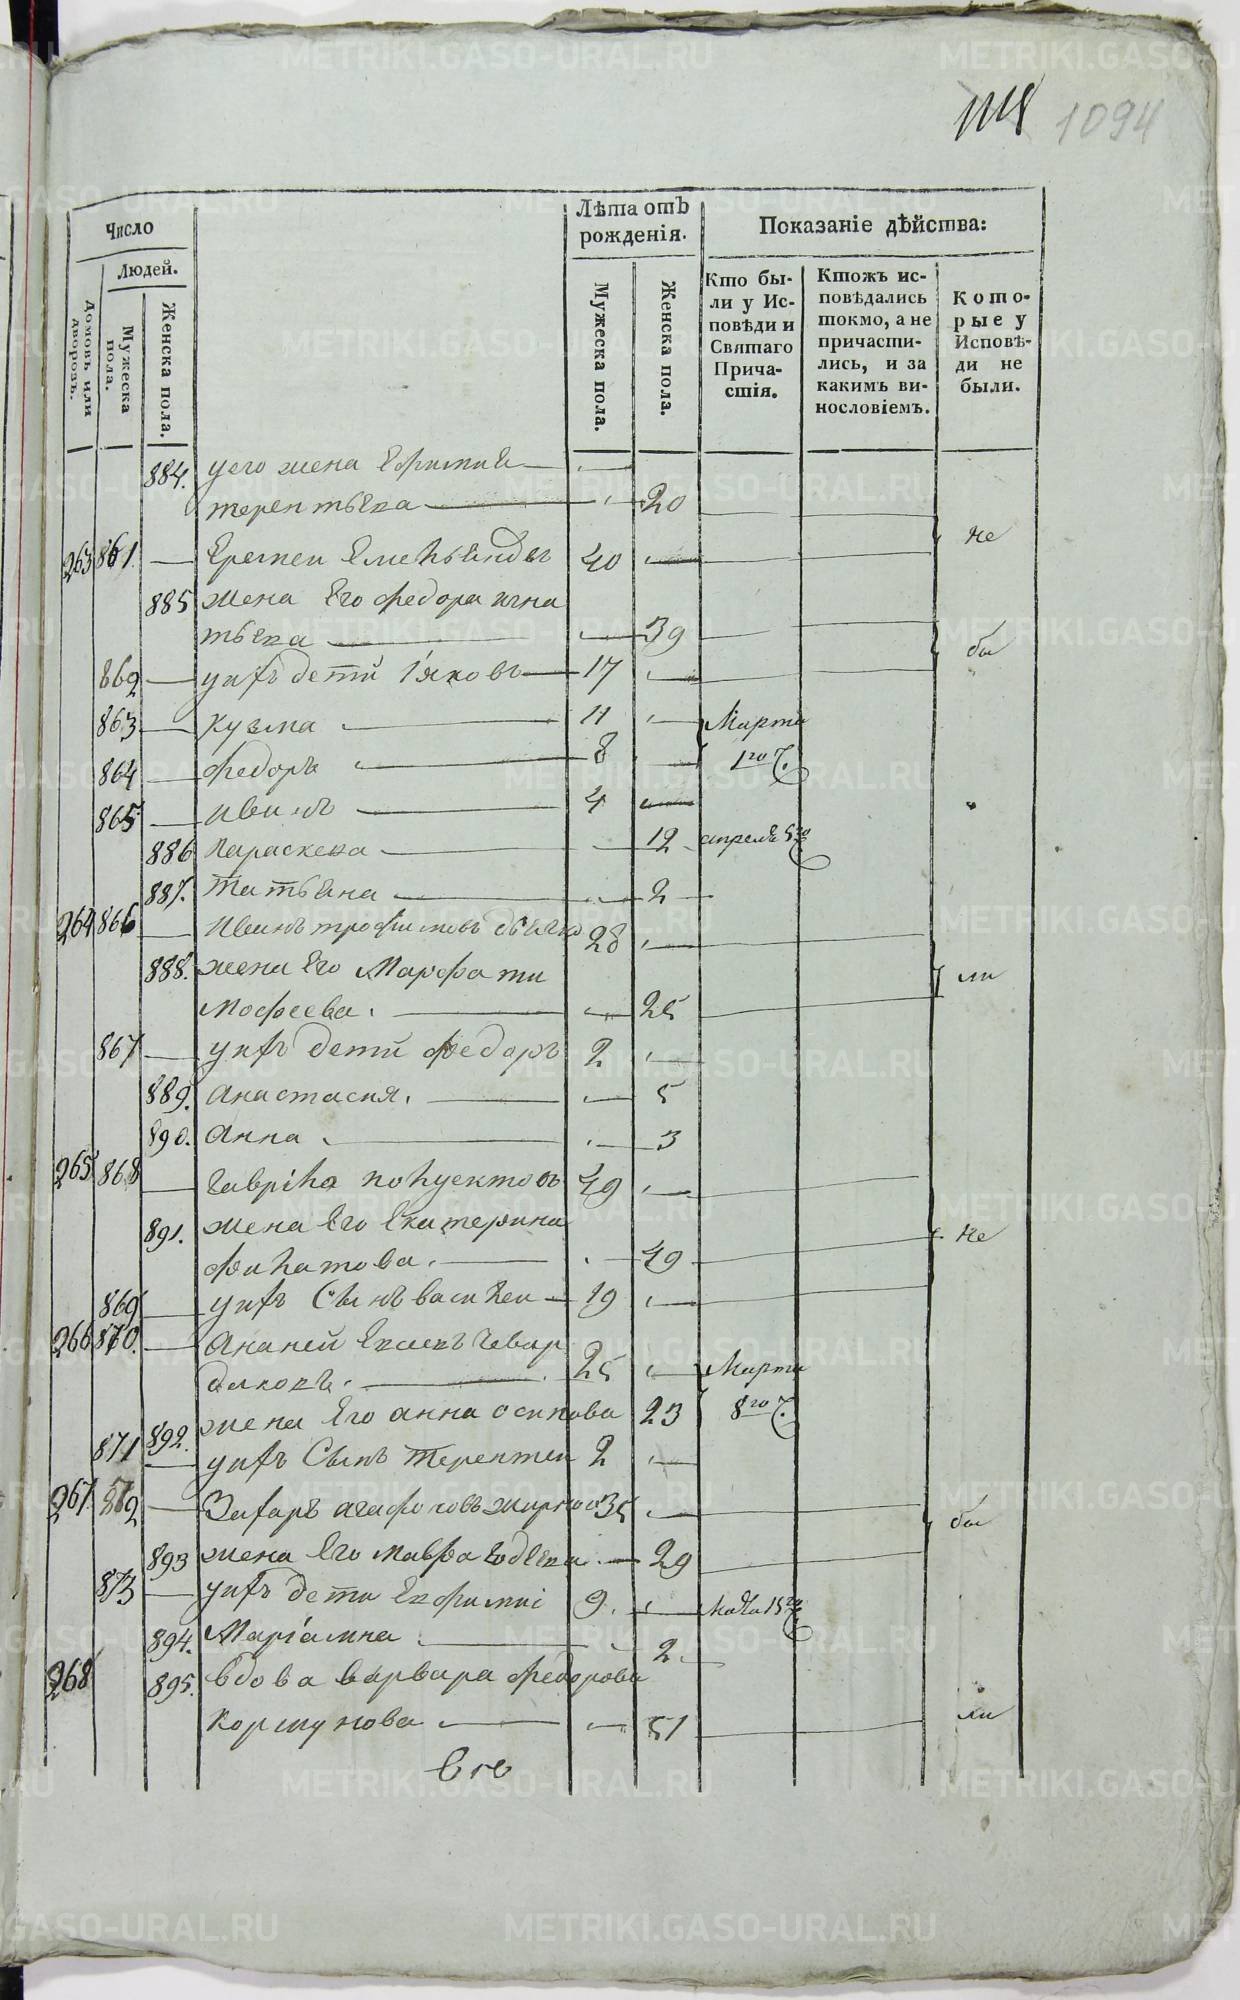 1118 1094
Число
Людей.
Домовъ или дворовъ.
Мужеска пола.
Женска пола.
Лѣта отъ рожденія.
Мужеска пола.
Женска пола.
Показаніе дѣйства:
Кто бы-
ли у Ис-
повѣди и
Святаго
Прича-
стія.
Ктожъ ис-
повѣдались
токмо, а не
причасти-
лись, и за
какимъ ви-
нословіемъ.
Кото-
рые у
Исповѣ-
ди не
были.
884. уего жена
терентьева 20
не
263 861. Еремеи Емельяновъ 40
885 жена Его федора игна
тьева 39
бы
862 уихъ дети Iяковъ 17
863 кузма 11 Марта
864 федоръ 8 1го ч.
865 иванъ 4
886 Параскева 12 апреля 5го
887. Татьяна 2
264 866 Иванъ трофимовъ 28
888. жена Его Марфа ти
мофеева. 25
ли
867 уихъ дети федоръ 2
889. анастасия. 5
890. анна 3
265 868 гаврiла полуектовъ 49
891. жена Его Екатерина
филатова. 49
не
869 уихъ Сынъ василеи 19
266 870. ананей
25 Марта
892. жена Его анна осипова 23 8го ч.
871 уихъ Сынъ терентеи 2
267 872 Захаръ агафоновъ 35
бы
893 жена Его мавра 29
873 уихъ дети 9. 15го
894. Марiамна 2
268 895. вдова варвара федорова
коршунова 51
ли
Его
METRIKI.GASO-URAL.RU